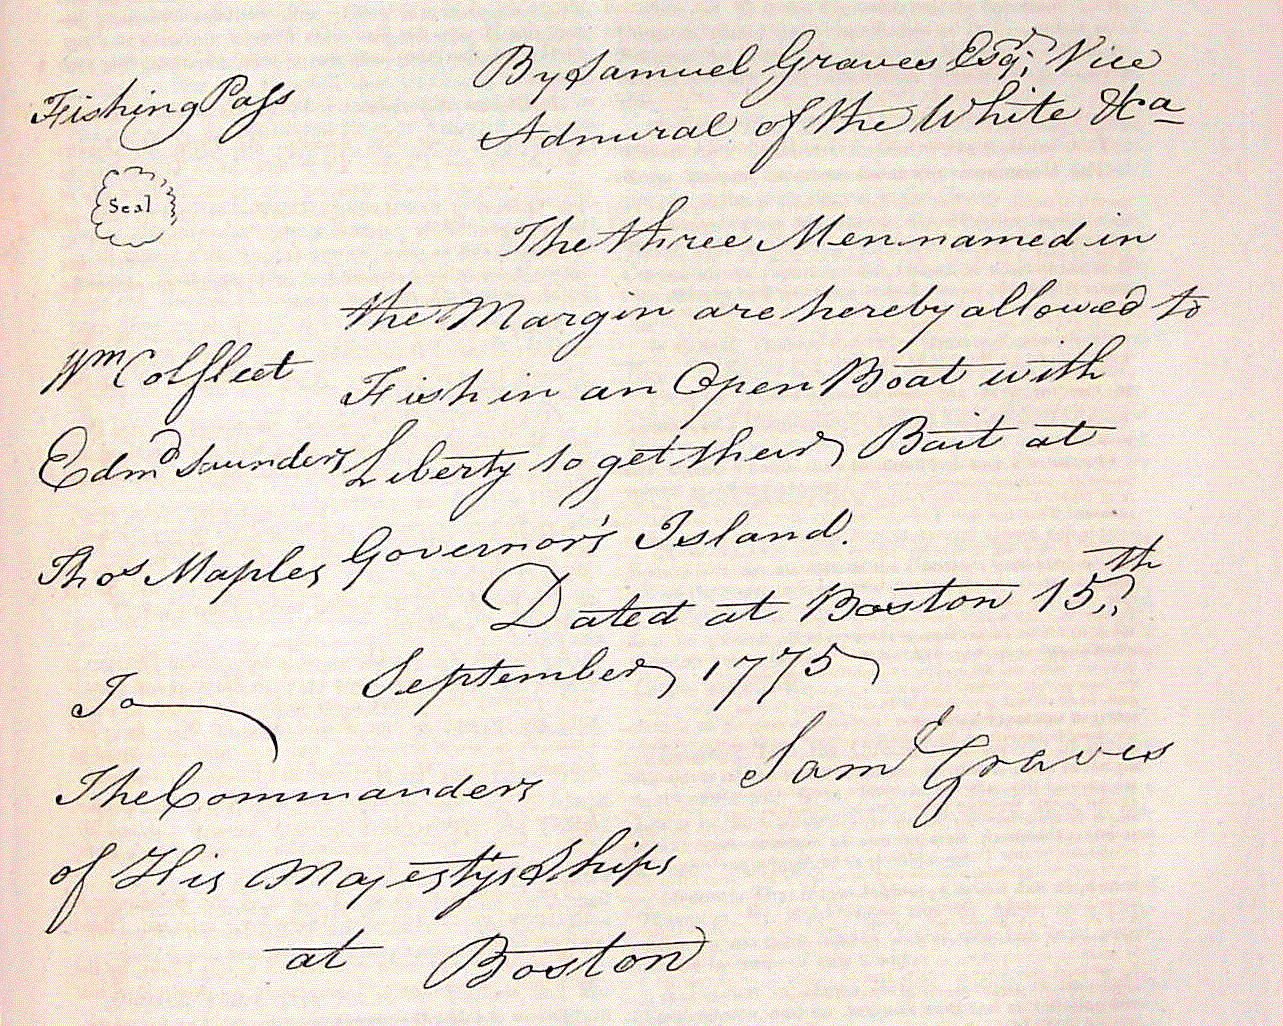 Fishing Pass
By Samuel Graves Esqr; Vice
Admiral of the White &ca
Seal
The three Men named in
the Margin are hereby allowed to
Fish in an Open Boat with
Liberty to get their Bait at
Governor's Island.
Wm Colfleet
Edmd Saunders
Thos Maples
Dated at Boston 15th
September 1775
Saml Graves
To
The Commanders
of His Majesty's Ships
at Boston